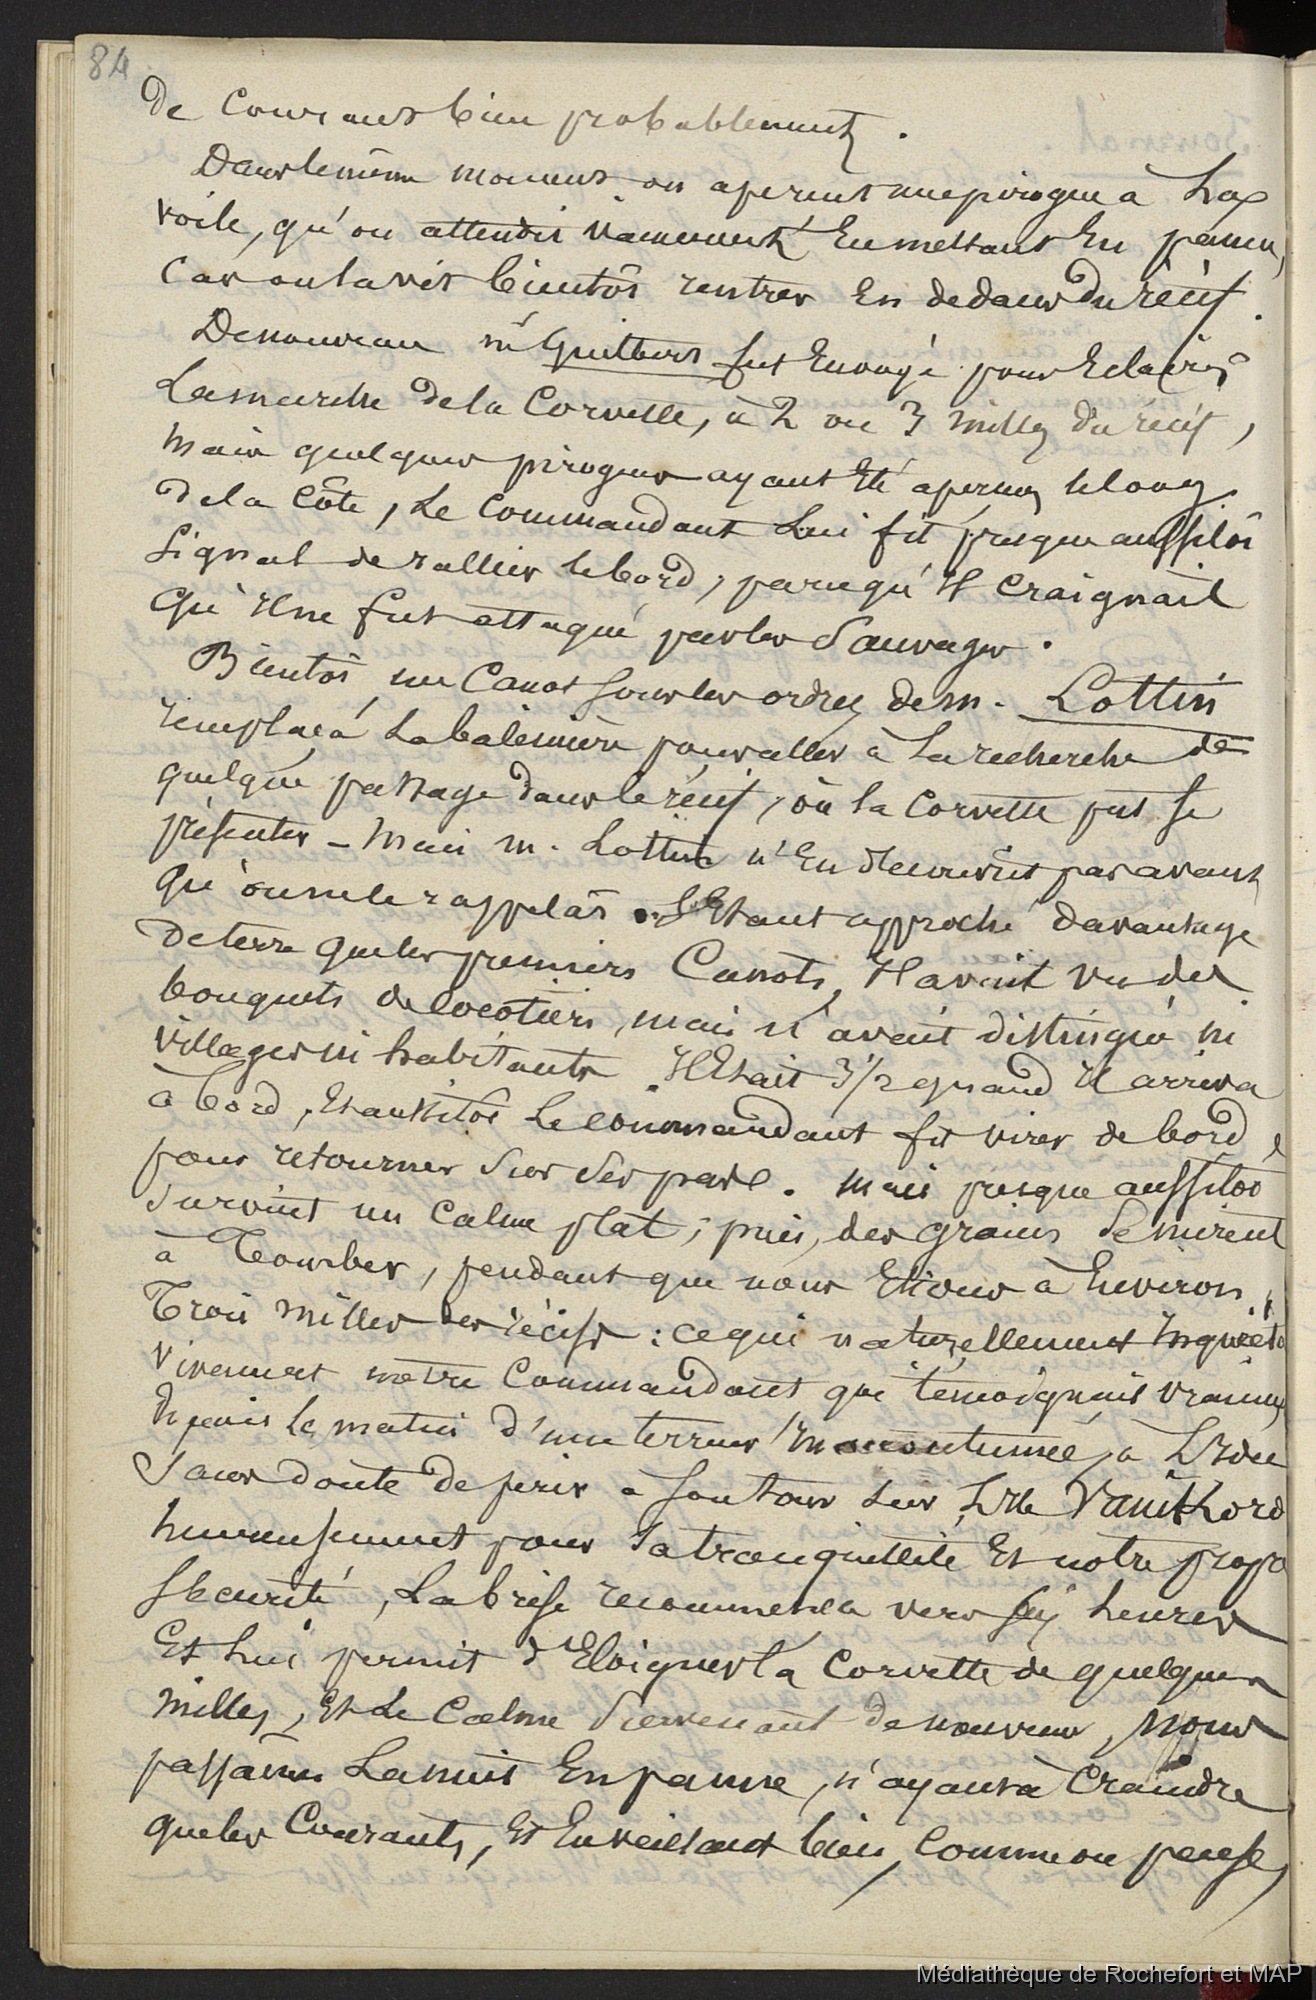 84
de Courants bien probablement.
Dans le même moment on aperçut une pirogue à la
voile, qu'on attendit vainement En mettant En panne,
Car on la vit bientôt rentrer En dedans du récif.
De nouveau Mr Guilbert fut Envoyé pour Eclairer
La marche de la Corvette, à 2 ou 3 milles du récif,
Mais quelques pirogues ayant Eté aperçues le long
de la Côte, Le Commandant Lui fit presque aussitôt
Signal de rallier le bord, parcequ'Il Craignait
qu'Il ne fut attaqué par les Sauvages.
Bientôt un Canot sous les ordres de M. Lottin
remplaça La baleinière pour aller à La recherche de
quelque passage dans le récif, où la Corvette put se
présenter – Mais M. Lottin n'En découvrit pas avant
qu'on ne le rappelât. S'Etant approché davantage
de terre que les premiers Canots, Il avait vu des
bouquets de Cocotiers, mais n'avait distingué ni
villages ni habitants. Il Etait 3 1/2 quand Il arriva
à bord, Et aussitôt Le Commandant fit virer de bord
pour retourner Sur Ses pas. Mais presque aussitôt
Survint un Calme plat; puis, des grains Se mirent
à Tomber, pendant que nous Etions à Environ
Trois Milles des récifs: ce qui naturellement Inquiéta
vivement notre Commandant qui témoignait vraiment
depuis le matin d'une terreur Inaccoutumée, à L'Idée
Sans doute de périr à son tour sur L'Ile Vanikoro
heureusement pour Sa tranquillité Et notre propre
Sécurité, La brise recommença vers six heures
Et Lui permit d'Eloigner la Corvette de quelques
Milles, Et Le Calme Survenant de nouveau, Nous
passâmes La nuit En panne, n'ayant à Craindre
que les Courants, Et En veillant bien, Comme on pense,
Médiathèque de Rochefort et MAP